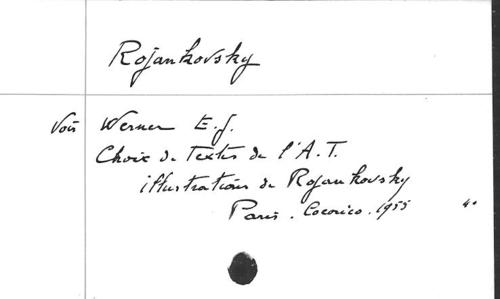 Rojankovsky
Voir Werner E.J.
Choix de Textes de l'A.T.
illustrations de Rojankovsky
Paris. Cocorico. 1955 4°